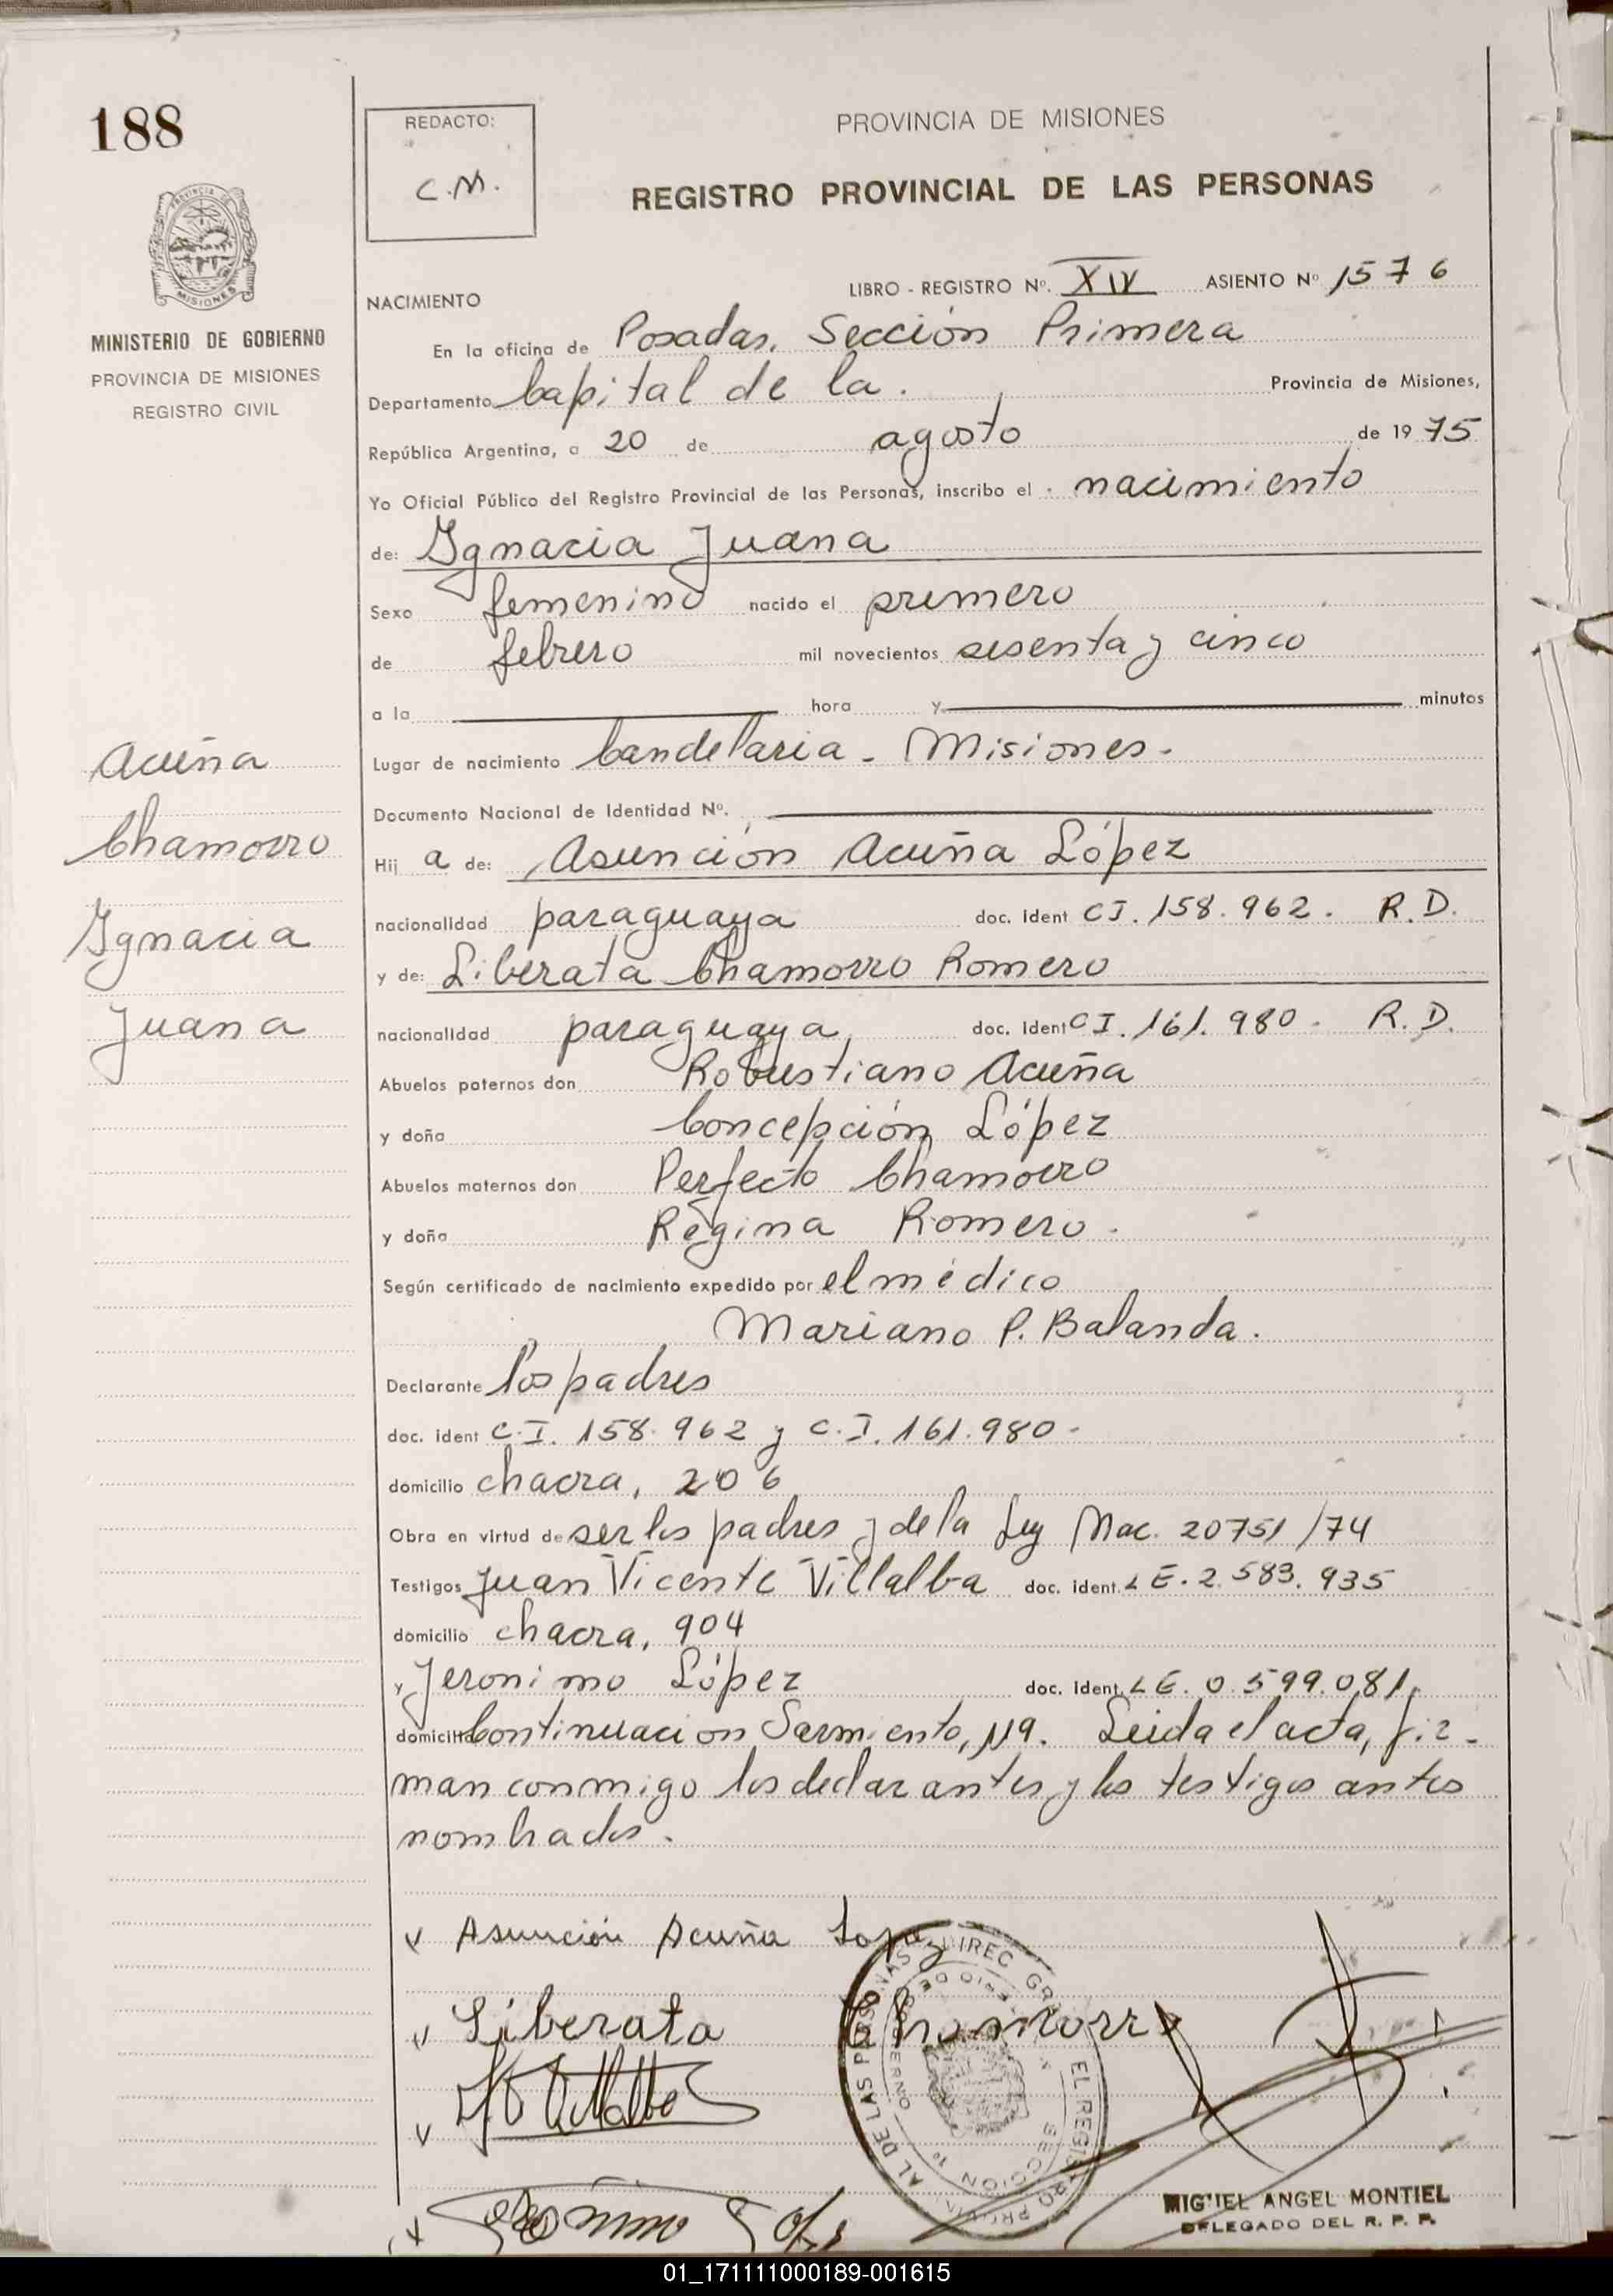 188
REDACTO:
C.M.
PROVINCIA DE MISIONES
REGISTRO PROVINCIAL DE LAS PERSONAS
MISIONES
MINISTERIO DE GOBIERNO
PROVINCIA DE MISIONES
REGISTRO CIVIL
NACIMIENTO
LIBRO - REGISTRO Nº. XIV ASIENTO Nº 1576
En la oficina de Posadas, Sección Primera
Departamento Capital de la. Provincia de Misiones,
República Argentina, a 20 de agosto de 1975
Yo Oficial Público del Registro Provincial de las Personas, inscribo el nacimiento
de: Ygnacia Juana
Sexo femenino nacido el primero
de febrero mil novecientos sesenta y cinco
a la hora y minutos
Lugar de nacimiento Candelaria - Misiones.
Documento Nacional de Identidad Nº.
Acuña
Chamorro
Ygnacia
Juana
Hij a de: Asunción Acuña López
nacionalidad paraguaya doc. Ident C.I. 158.962. R.D.
y de: Liberata Chamorro Romero
nacionalidad paraguaya doc. Ident C.I. 161.980. R.D.
Abuelos paternos don Robustiano Acuña
y doña Concepción López
Abuelos maternos don Perfecto Chamorro
y doña Regina Romero.
Según certificado de nacimiento expedido por el médico
Mariano P. Balanda.
Declarante los padres
doc. ident C.I. 158.962 y C.I. 161.980.
domicilio chacra, 206
Obra en virtud de ser los padres y de la Ley Nac. 20751/74
Testigos Juan Vicente Villalba doc. ident. L E. 2.583.935
domicilio chacra, 904
y Jeronimo López doc. ident. L E. 0.599.081,
domicilio Continuacion Sarmiento, Leida el acta, fir-
man conmigo los declarantes y los testigos antes
nombrados.
v Asunción Acuña
v Liberata Chamorro
v Villalba
MIGUEL ANGEL MONTIEL
DELEGADO DEL R. P. P.
01_171111000189-001615